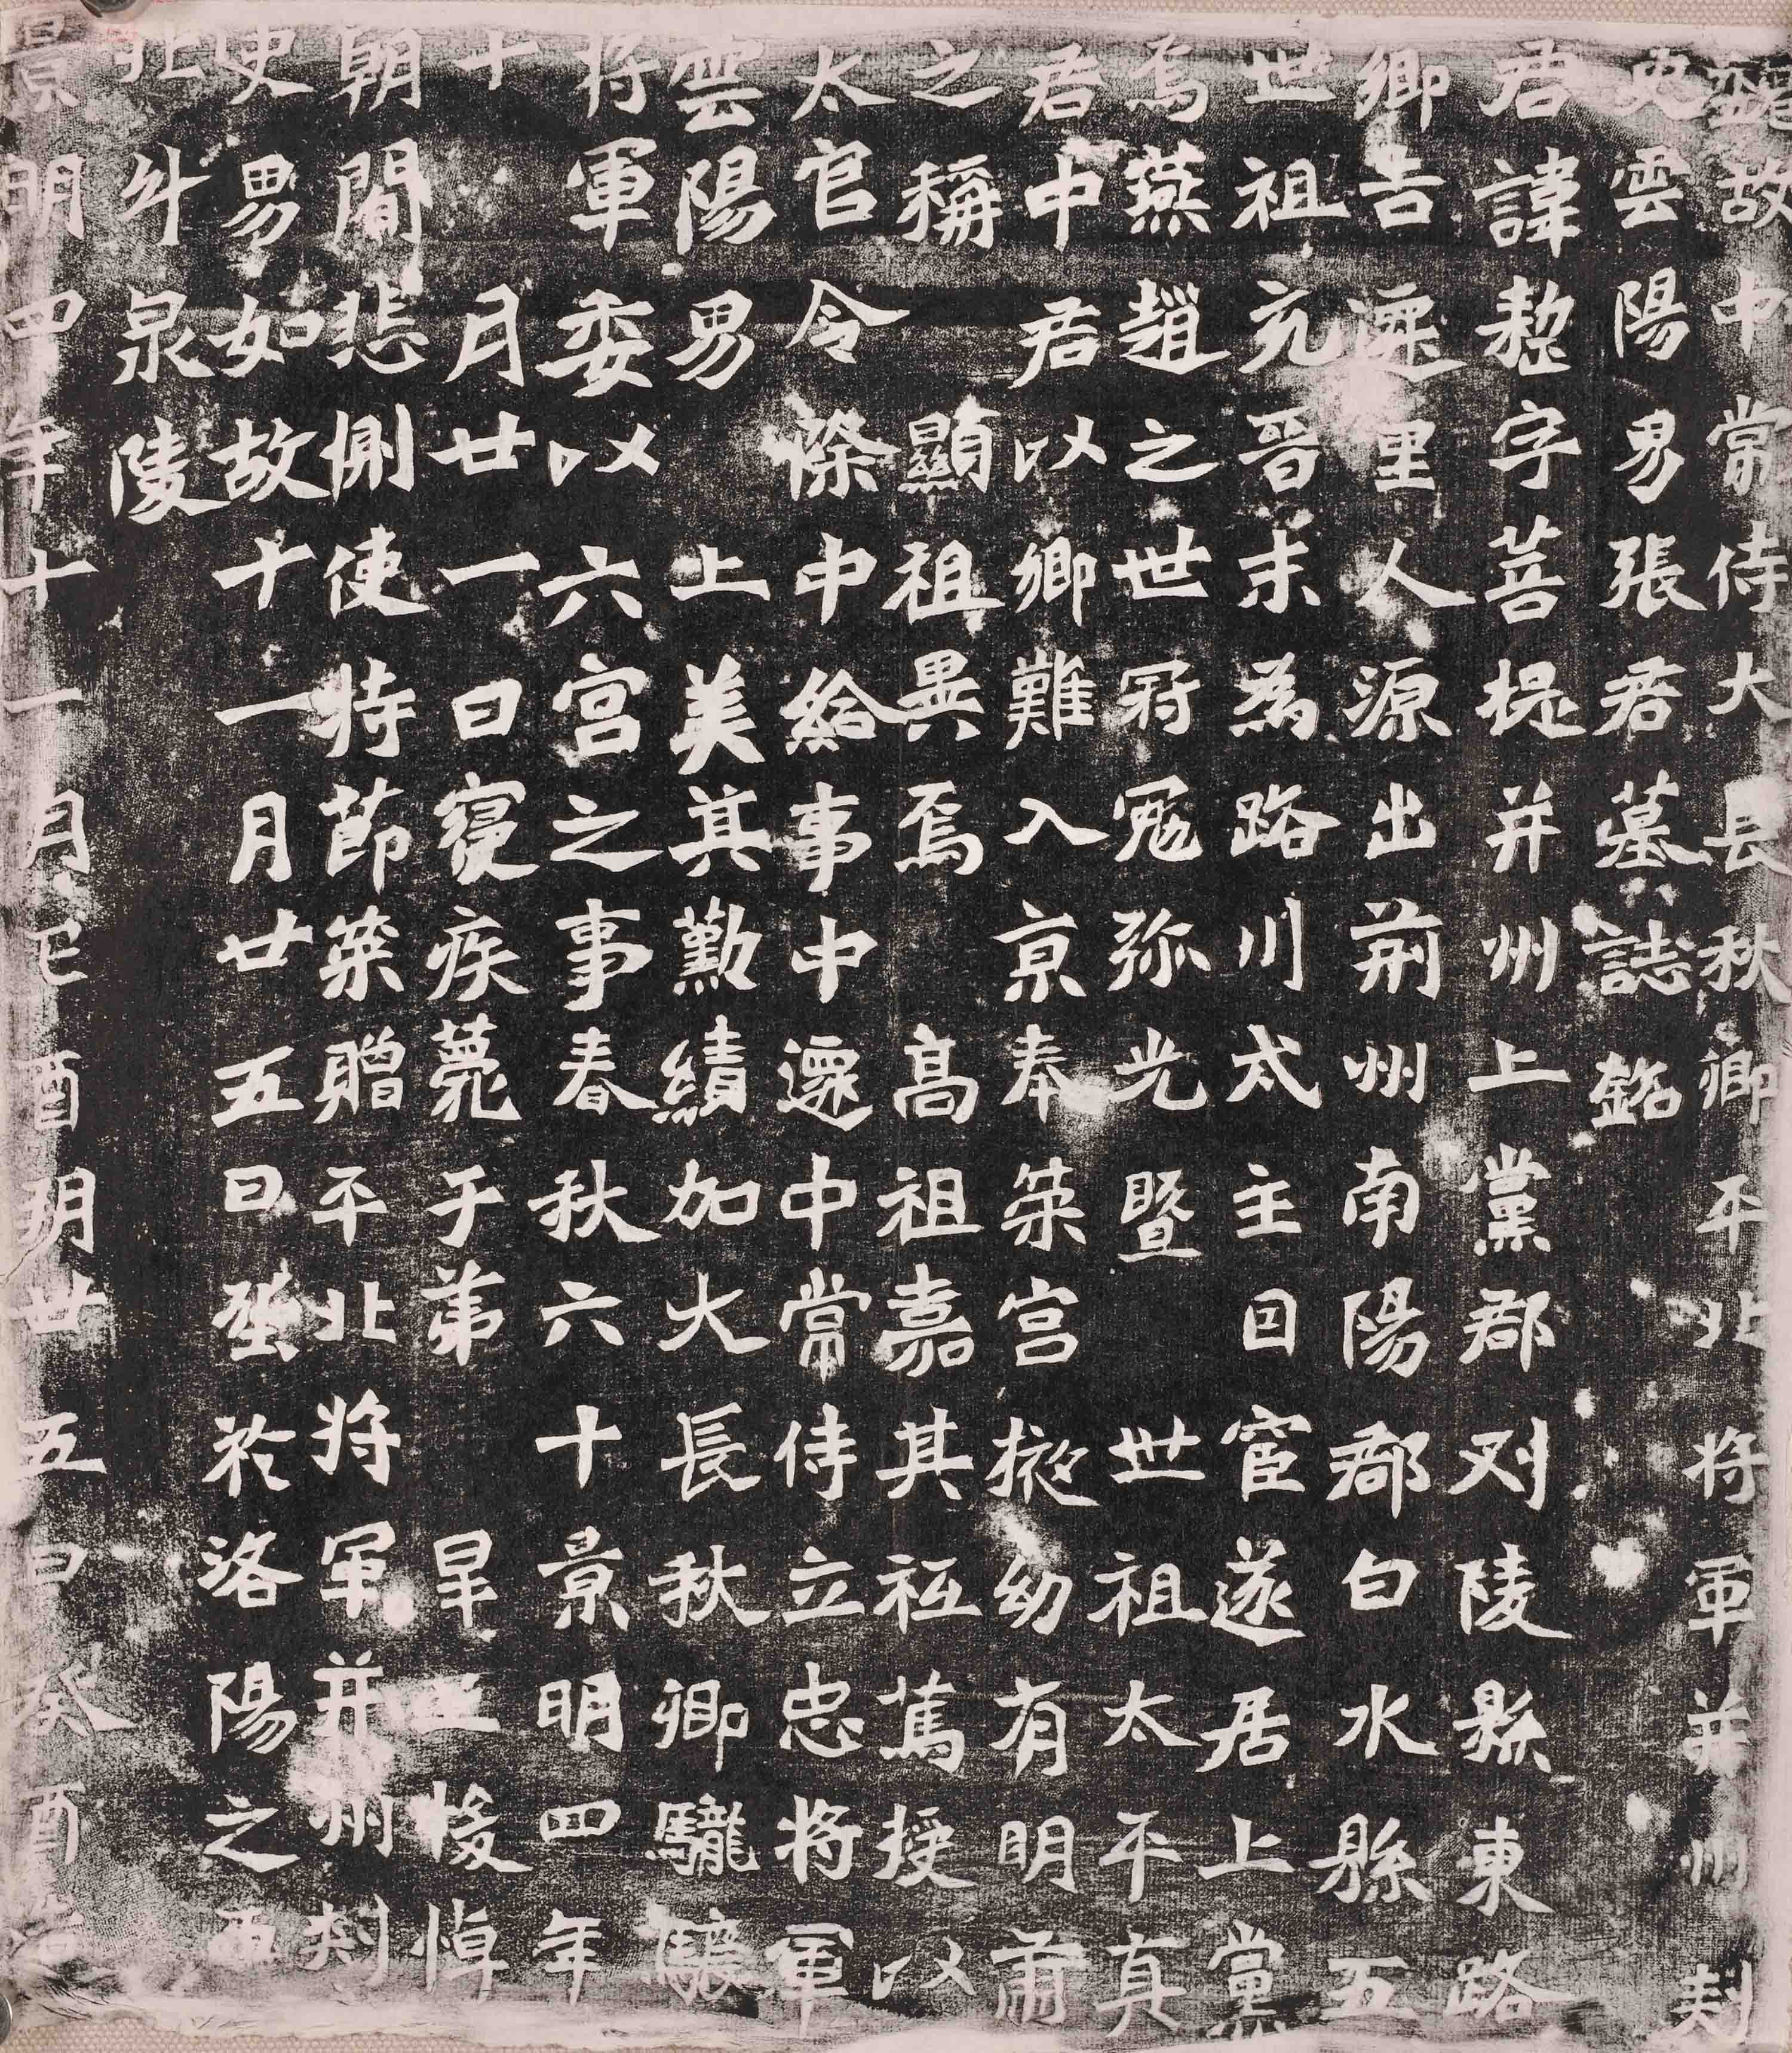 魏故中常侍大長秋卿平北將軍并州刺
史雲陽男張君墓誌銘
君諱整字菩提并州上黨郡刈陵縣東路
鄉吉遷里人源出荊州南陽郡白水縣五
世祖充晉末為路川太主因宦遂居上黨
焉燕趙之世冠冕弥光暨 世祖太平真
君中君以鄉難入京奉策宮掖幼有明肅
之稱 顯祖異焉 高祖嘉其祗篤授以
太官令除中給事中遷中常侍立忠將軍
雲陽男 上美其勤績加大長秋卿龍驤
將軍委以六宮之事春秋六十景明四年
十月廿一日寢疾薨于第 皇上悛悼
朝間悲惻使持節策贈平北將軍并州刺
史男如故十一月廿五日塟於洛陽之西
北斗泉陵
景明四年十一月己酉朔廿五日癸酉造